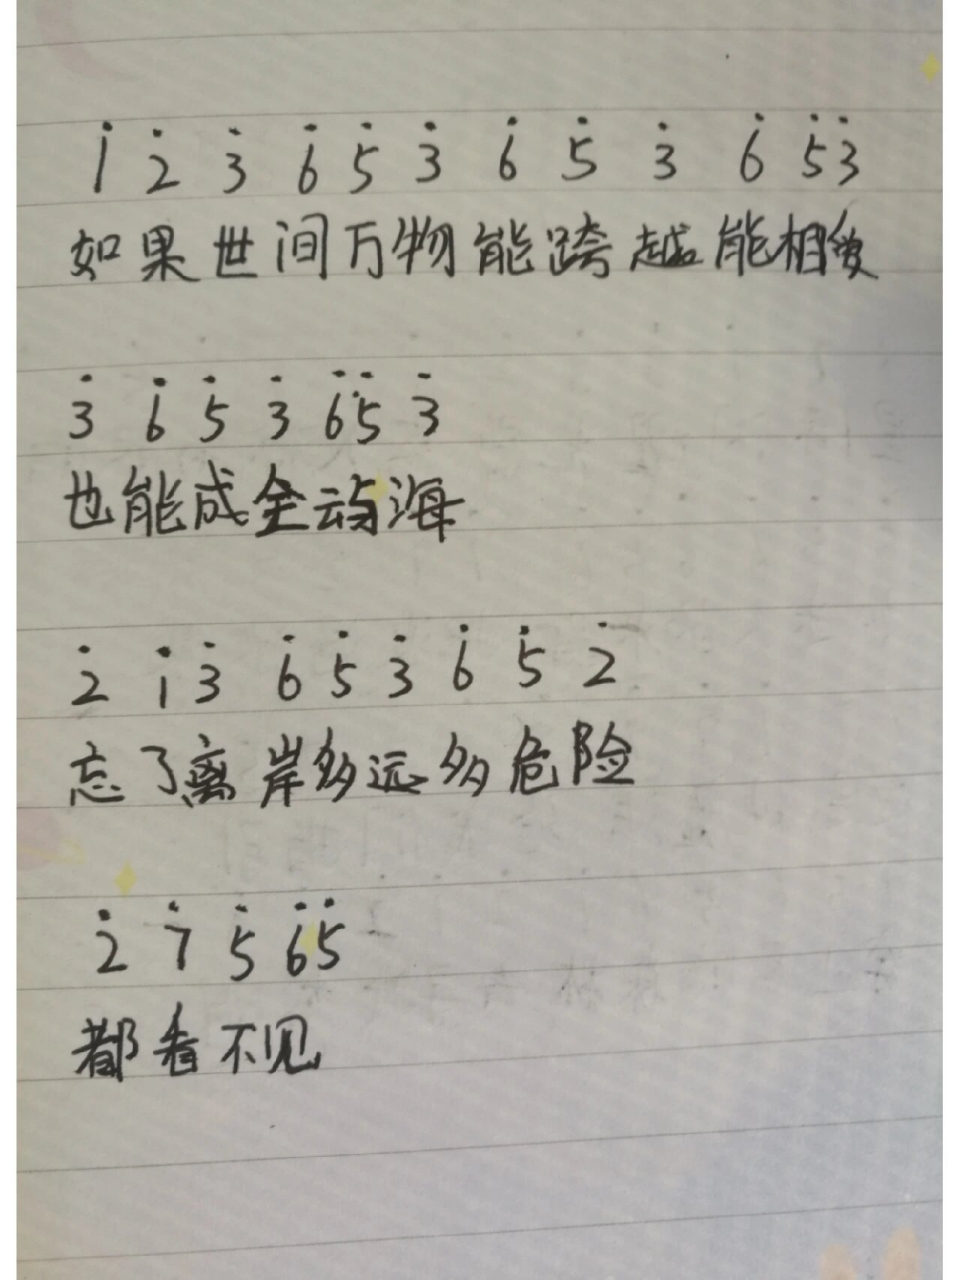 1̇ 2̇ 3̇ 6̇ 5̇ 3̇ 6̇ 5̇ 3̇ 6̇ 5̇3̇
如果世间万物能跨越能相爱
3̇ 6̇ 5̇ 3̇ 6̇5̇ 3̇
也能成全云与海
2̇ 1̇ 3̇ 6̇ 5̇ 3̇ 6̇ 5̇ 2̇
忘了离岸多远多危险
2̇ 7̇ 5̇ 6̇5̇
都看不见